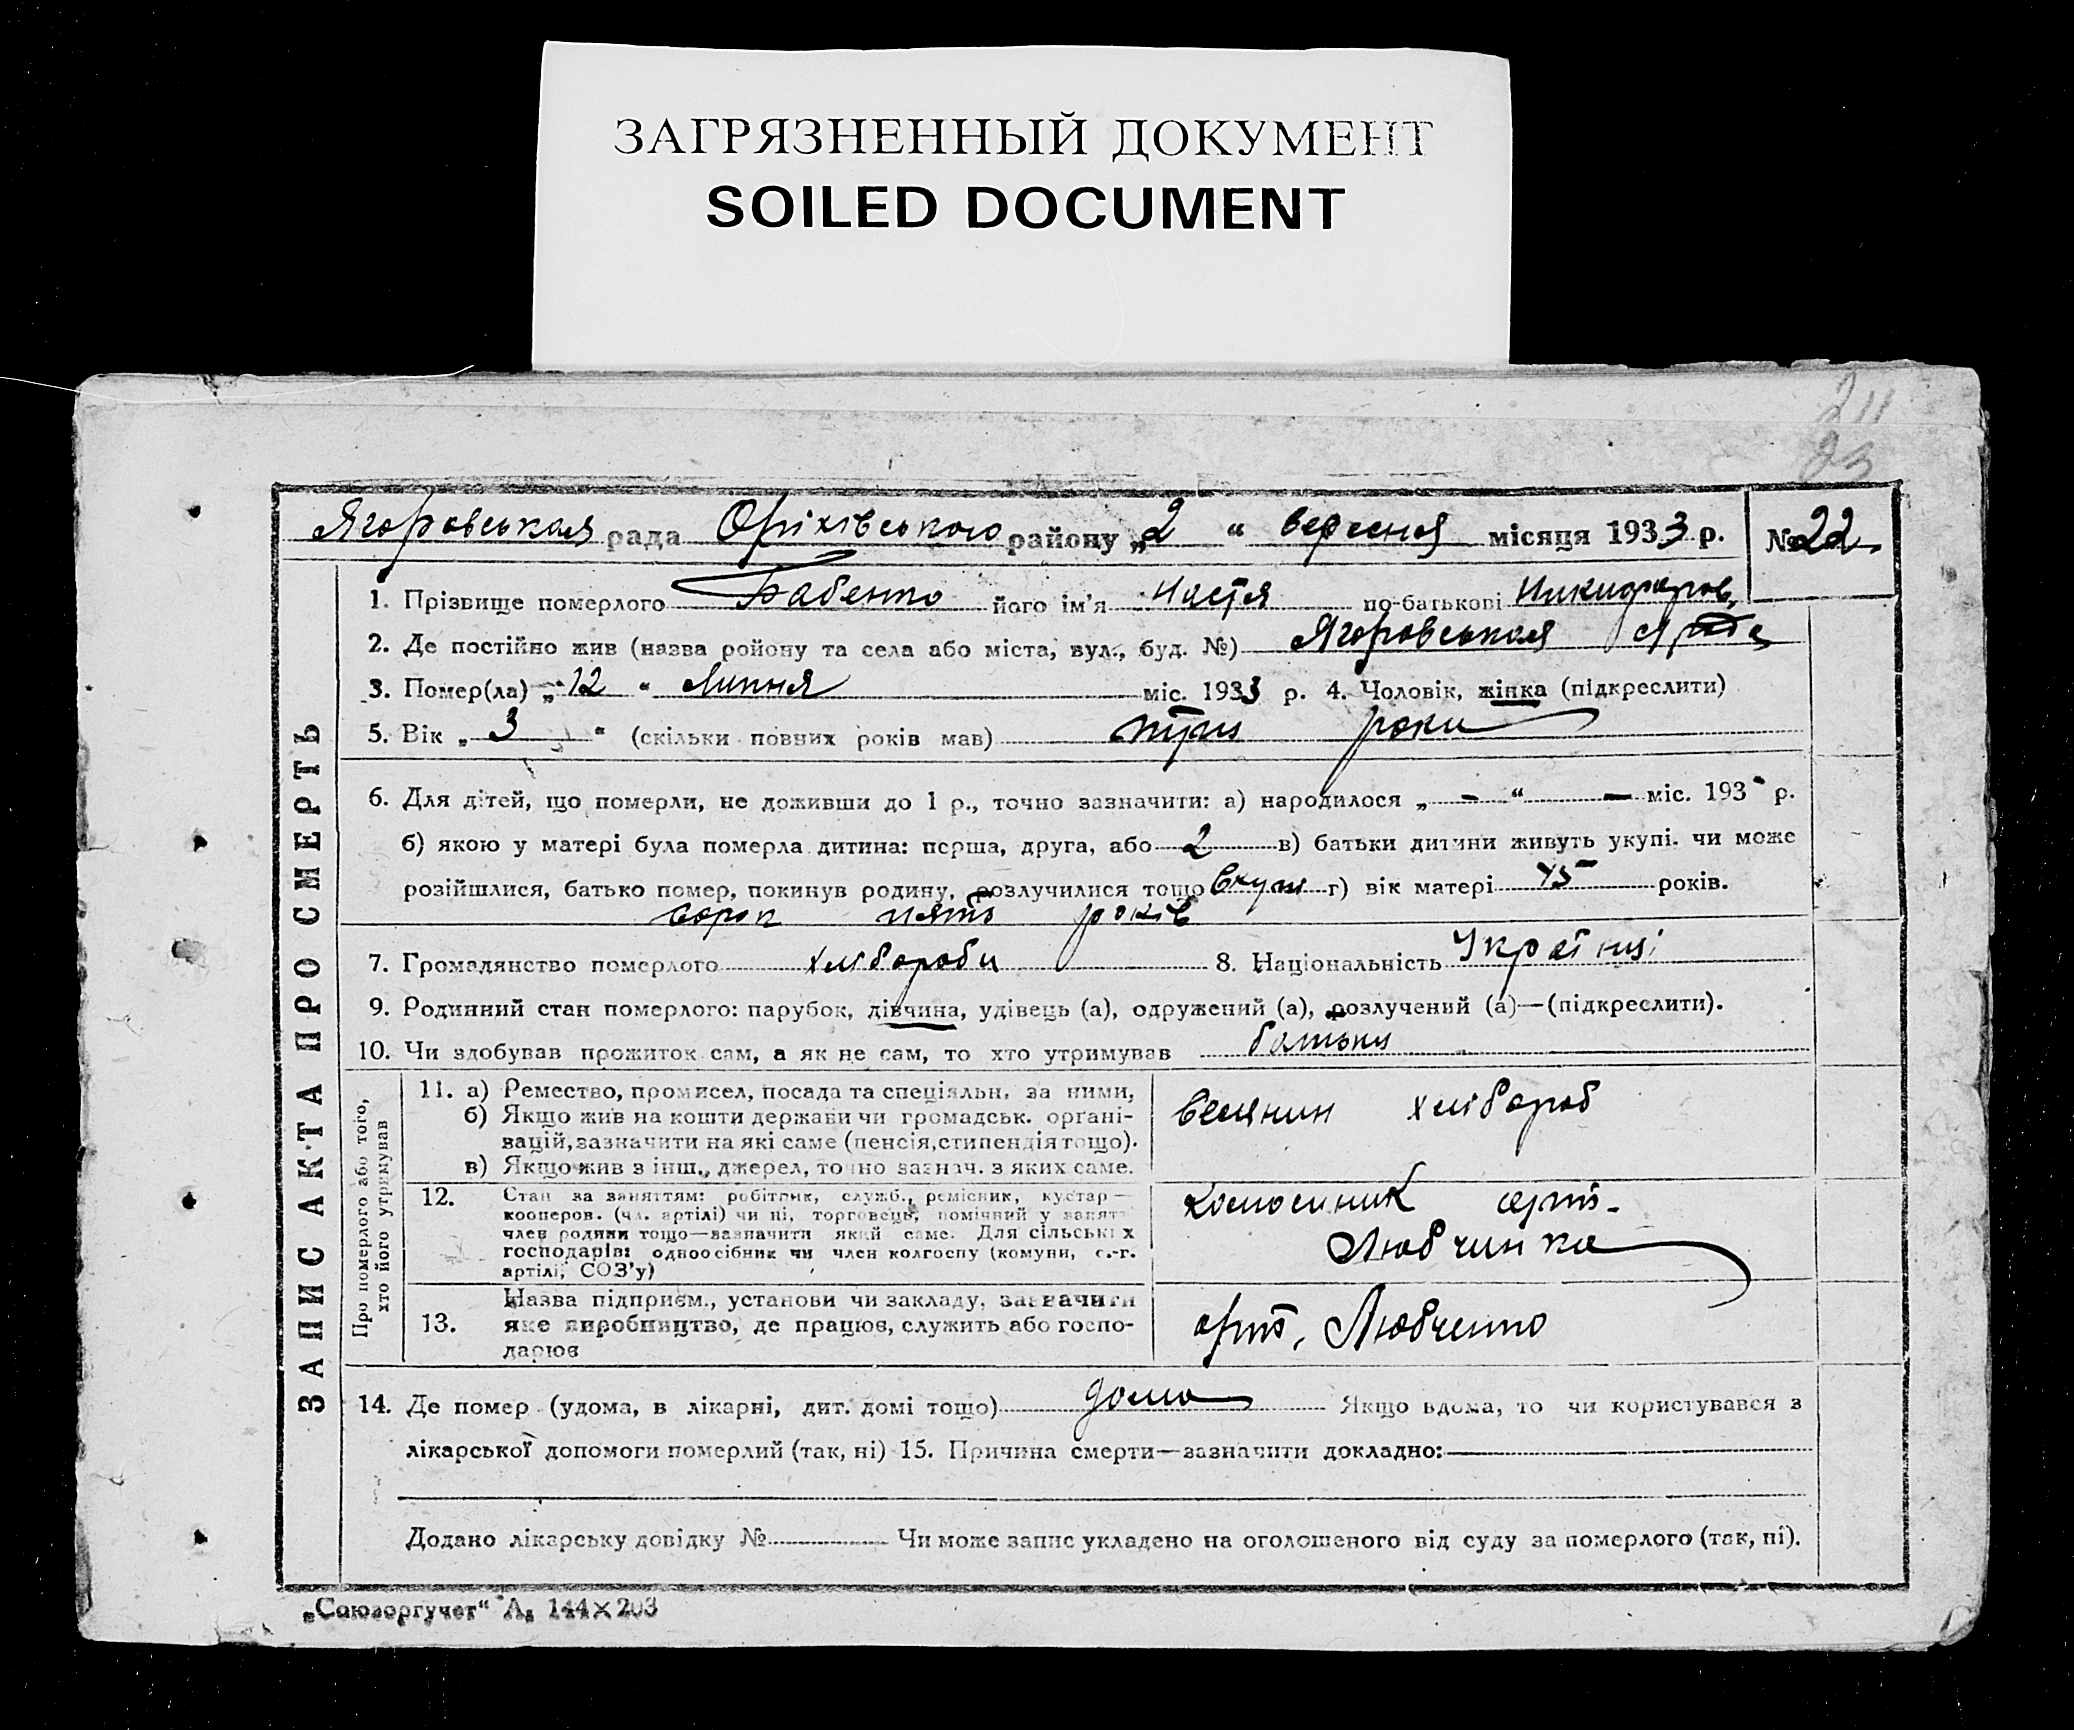 ЗАГРЯЗНЕННЫЙ ДОКУМЕНТ
SOILED DOCUMENT
211
23
Ягоровськая рада Оріхівського району „2“ вересня місяця 1933 р. №22.
1. Прізвище померлого Бабенко його ім'я Настя по-батькові Никифоров.
2. Де постійно жив (назва ройону та села або міста, вул., буд. №) Ягоровськая
3. Помер(ла) „12“ Липня міс. 1933 р. 4. Чоловік, жінка (підкреслити)
5. Вік „3“ (скільки повних років мав) три роки
6. Для дітей, що померли, не доживши до 1 р., точно зазначити: а) народилося „-“ - міс. 193- р.
б) якою у матері була померла дитина: перша, друга, або 2 в) батьки дитини живуть укупі. чи може
розійшлися, батько помер, покинув родину, розлучилися тощо Вкупі г) вік матері 45 років.
сорок пять років
7. Громадянство померлого хлібороби 8. Національність Українці
9. Родинний стан померлого: парубок, дівчина, удівець (а), одружений (а), розлучений (а)—(підкреслити).
10. Чи здобував прожиток сам, а як не сам, то хто утримував батьки
ЗАПИС АКТА ПРО СМЕРТЬ
Про померлого або того,
хто його утримував
11. а) Ремество, промисел, посада та спеціяльн. за ними,
б) Якщо жив на кошти держави чи громадськ. органі-
зацій, зазначити на які саме (пенсія, стипендія тощо).
в) Якщо жив з інш., джерел, точно зазнач. з яких саме.
селянин хлібороб
12. Стан за заняттям: робітник, служб., ремісник, кустар—
кооперов. (чл. артілі) чи ні, торговець, помічний у занятт
член родини тощо—зазначити який саме. Для сільських
господарів: одноосібник чи член колгоспу (комуни, с.-г.
артілі, СОЗ'у)
колоспник арт.
Любчинка
13. Назва підприєм., установи чи закладу, зазначити
яке виробництво, де працює, служить або госпо-
дарює
арт. Любченко
14. Де помер (удома, в лікарні, дит. домі тощо) дома Якщо вдома, то чи користувався з
лікарської допомоги померлий (так, ні) 15. Причина смерти—зазначити докладно:
Додано лікарську довідку № Чи може запис укладено на оголошеного від суду за померлого (так, ні).
„Союзоргучет“ А₆ 144×203